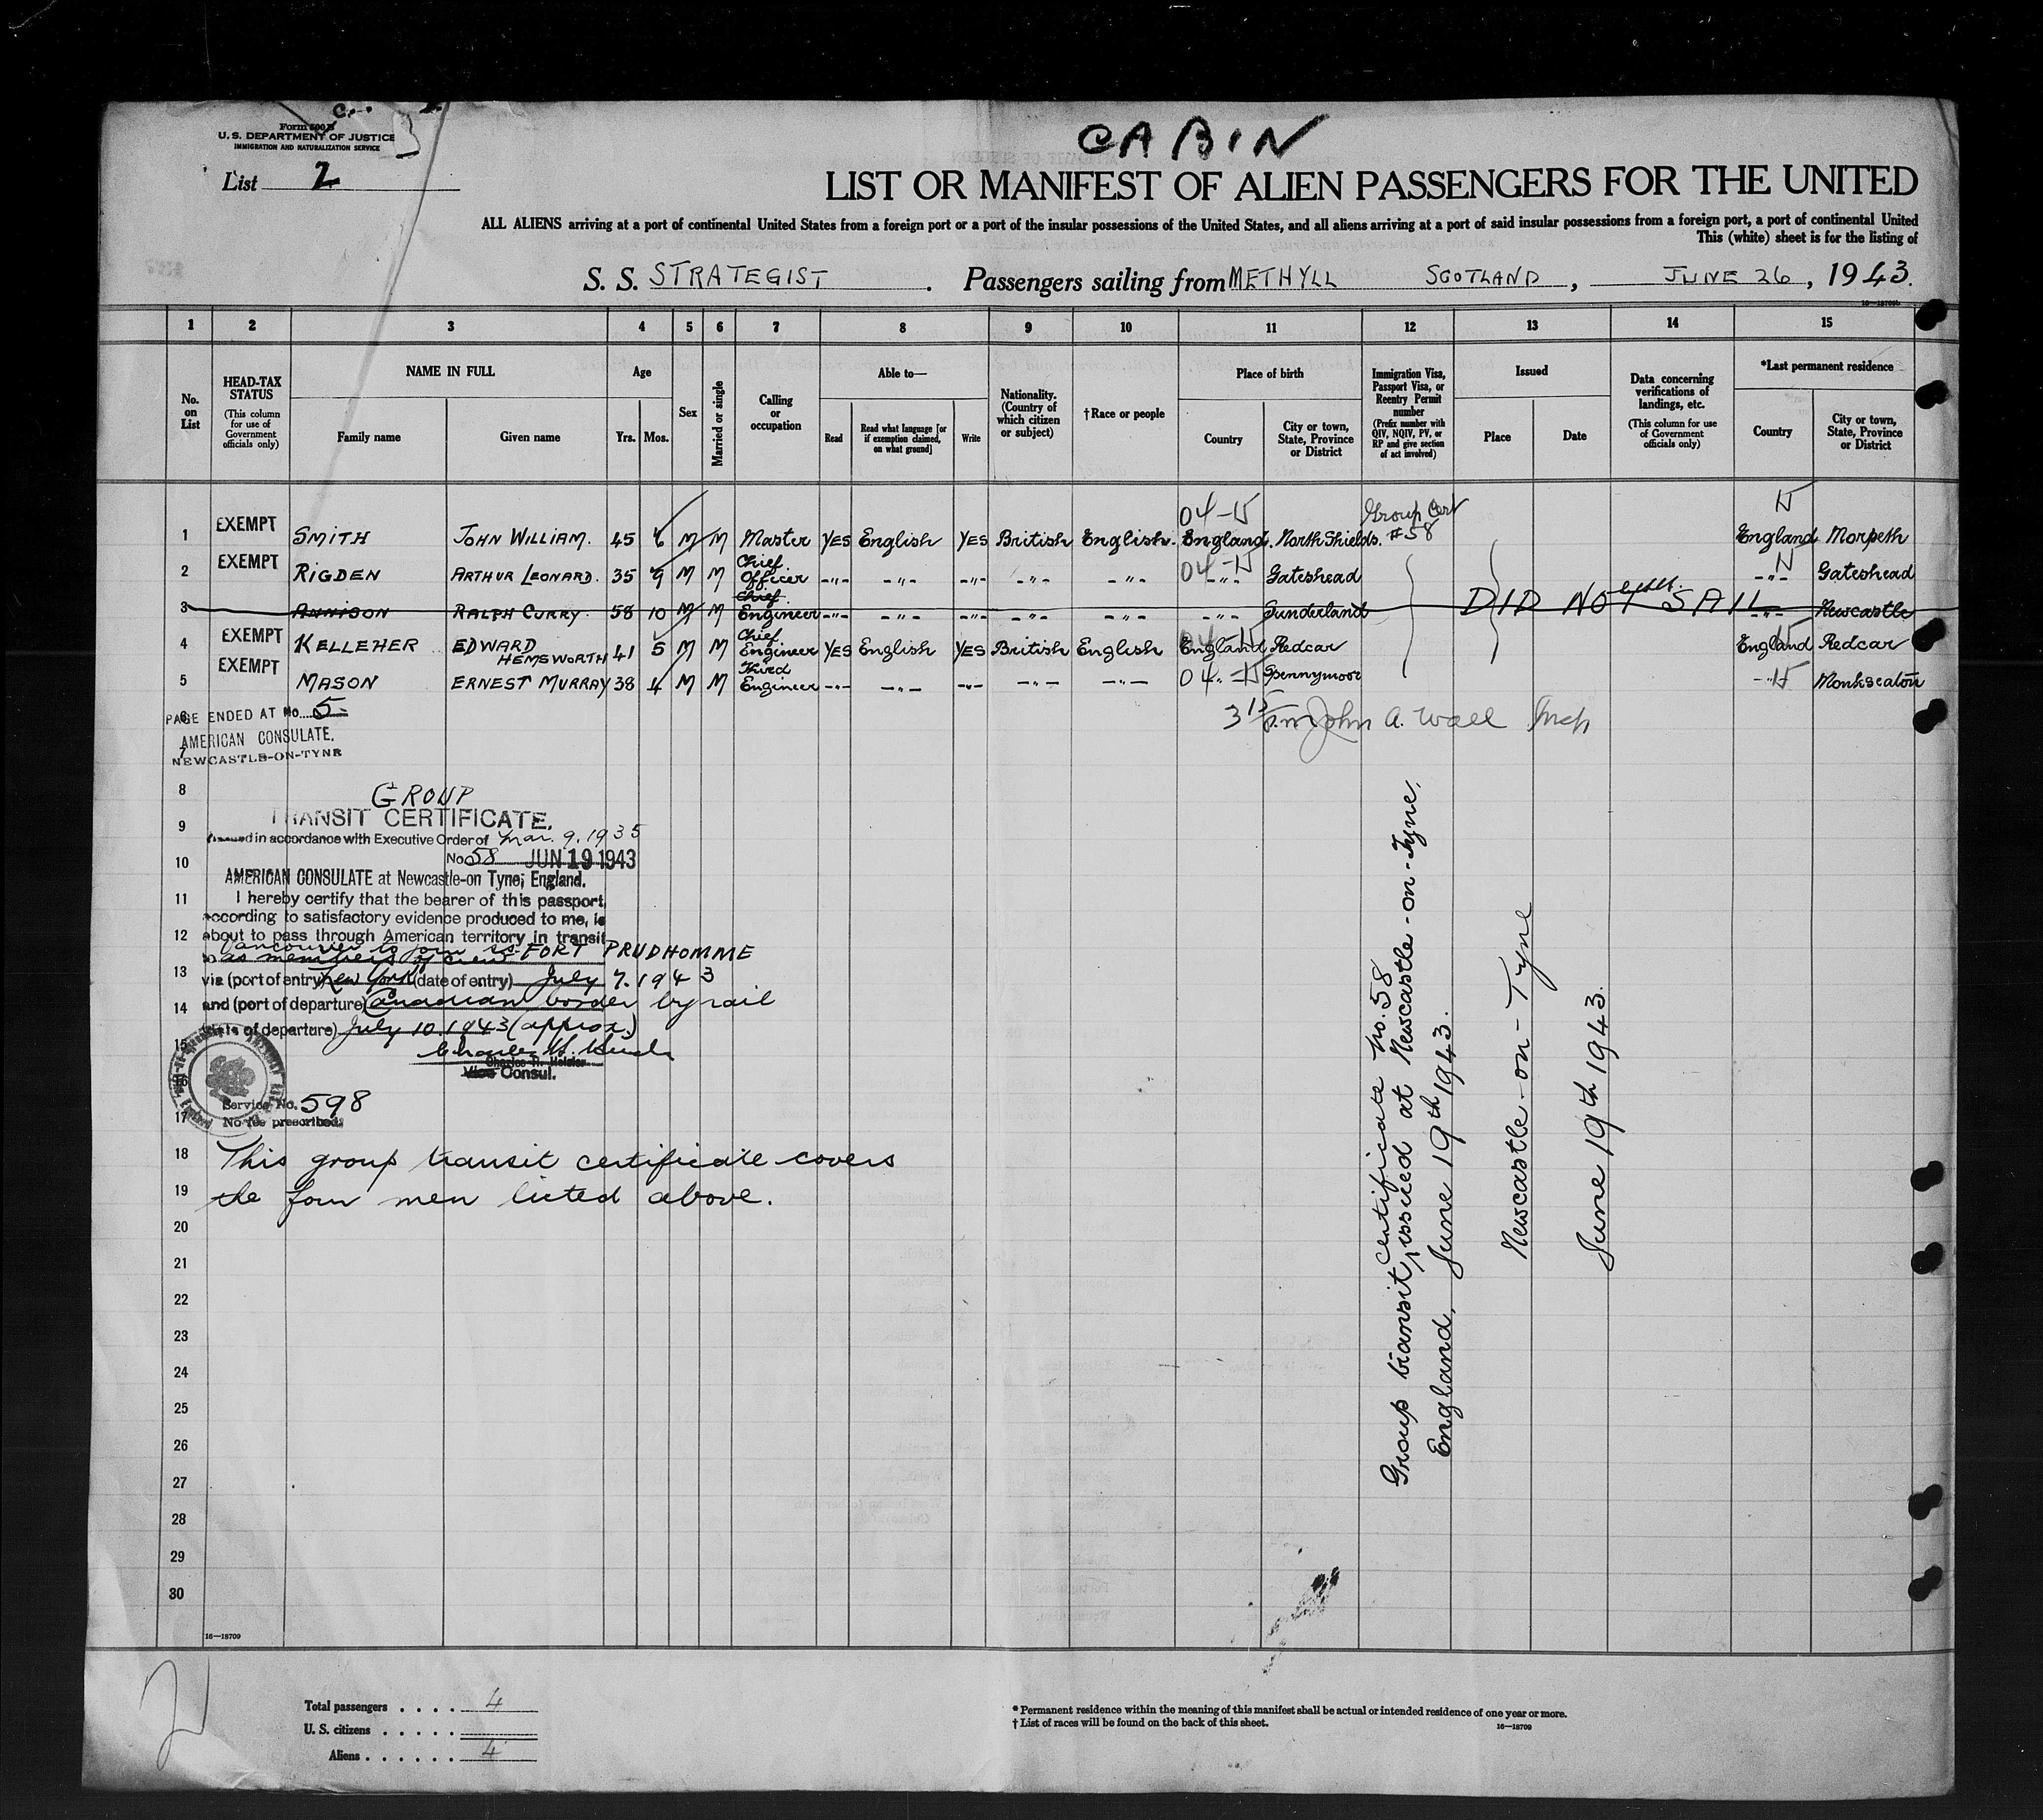 Form 500 B
U. S. DEPARTMENT OF JUSTICE
IMMIGRATION AND NATURALIZATION SERVICE
List 2
CABIN
LIST OR MANIFEST OF ALIEN PASSENGERS FOR THE UNITED
ALL ALIENS arriving at a port of continental United States from a foreign port or a port of the insular possessions of the United States, and all aliens arriving at a port of said insular possessions from a foreign port, a port of continental United
This (white) sheet is for the listing of
S. S. STRATEGIST . Passengers sailing from METHYLL SCOTLAND , JUNE 26 , 1943.
16—18709b
1 2 3 4 5 6 7 8 9 10 11 12 13 14 15
No. on List
HEAD-TAX STATUS
(This column for use of Government officials only)
NAME IN FULL
Family name Given name
Age
Yrs. Mos.
Sex
Married or single
Calling or occupation
Able to—
Read
Read what language [or if exemption claimed, on what ground]
Write
Nationality. (Country of which citizen or subject)
†Race or people
Place of birth
Country
City or town, State, Province or District
Immigration Visa, Passport Visa, or Reentry Permit number
(Prefix number with QIV, NQIV, PV, or RP and give section of act involved)
Issued
Place Date
Data concerning verifications of landings, etc.
(This column for use of Government officials only)
*Last permanent residence
Country
City or town, State, Province or District
04-
Group Cert
1 EXEMPT SMITH JOHN WILLIAM. 45 6 M M Master YES English YES British English. England. North Shields. #58 England Morpeth
2 EXEMPT RIGDEN ARTHUR LEONARD. 35 9 M M Chief Officer -"- -"- -"- -"- -"- 04- -"- Gateshead -"- Gateshead
3 ANNISON RALPH CURRY. 58 10 M M Chief Engineer -"- -"- -"- -"- -"- -"- Sunderland DID NOT SAIL -"- Newcastle
4 EXEMPT KELLEHER EDWARD HEMSWORTH 41 5 M M Chief Engineer YES English YES British English England Redcar England Redcar
5 EXEMPT MASON ERNEST MURRAY 38 4 M M Third Engineer -"- -"- -"- -"- -"- 04 -"- Spennymoor -"- Monkseaton
6
PAGE ENDED AT No. 5-
AMERICAN CONSULATE,
7
NEWCASTLE-ON-TYNE
John A. Wall Insp
8
GROUP
TRANSIT CERTIFICATE.
9
Issued in accordance with Executive Order of Mar. 9, 1935
No 58 JUN 19 1943
10
AMERICAN CONSULATE at Newcastle-on Tyne, England.
11
I hereby certify that the bearer of this passport,
according to satisfactory evidence produced to me, is
12
about to pass through American territory in transit
to Vancouver to join ss. FORT PRUDHOMME
as members of crew
13
via (port of entry) New York (date of entry) July 7. 1943
14
and (port of departure) Canadian border by rail
(date of departure) July 10. 1943 (approx.)
15
Vice Consul.
16
Service No. 598
17
No fee prescribed.
18
This group transit certificate covers
19
the four men listed above.
20
21
22
23
24
25
26
27
28
29
30
Group transit certificate No. 58
issued at Newcastle-on-Tyne,
England, June 19th 1943.
Newcastle-on-Tyne
June 19th 1943.
16—18709
2
Total passengers . . . . 4
U. S. citizens . . . . .
Aliens . . . . . . 4
* Permanent residence within the meaning of this manifest shall be actual or intended residence of one year or more.
† List of races will be found on the back of this sheet.
16—18709